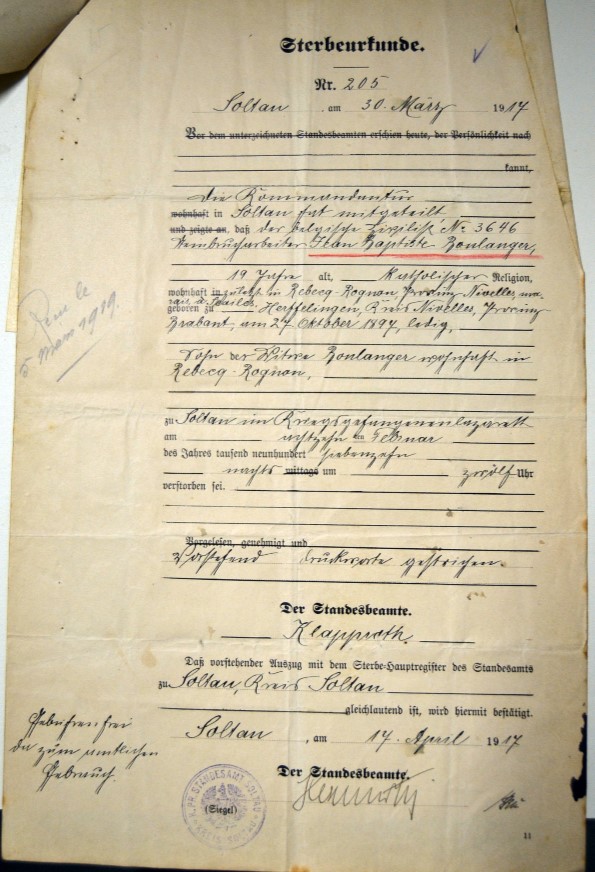 Sterbeurkunde.
Nr. 205
Soltau, am 30. März 1917
Vor dem unterzeichneten Standesbeamten erschien heute, der Persönlichkeit nach
kannt,
Die Kommandantur
wohnhaft in Soltau hat mitgeteilt,
und zeigte an, daß der belgische Zivilist No 3646
Steinbrucharbeiter Jean Baptiste Boulanger,
19 Jahre alt, Katholischer Religion,
wohnhaft in zuletzt in Rebecq-Rognon Provinz Nivelles,
geboren zu Herffelingen, Kreis Nivelles, Provinz
Brabant, am 27. Oktober 1897, ledig,
Sohn der Witwe Boulanger wohnhaft in
Rebecq-Rognon,
zu Soltau im Kriegsgefangenenlazarett
am achtzehnten Februar
des Jahres tausend neunhundert siebenzehn
nachts mittags um zwölf Uhr
verstorben sei.
Vorgelesen, genehmigt und
Vorstehend Druckworte gestrichen.
Der Standesbeamte.
Klapproth.
Daß vorstehender Auszug mit dem Sterbe-Hauptregister des Standesamts
zu Soltau, Kreis Soltau
gleichlautend ist, wird hiermit bestätigt.
Soltau, am 17. April 1917
Der Standesbeamte.
(Siegel)
Gebührenfrei
da zum amtlichen
Gebrauch.
5 Mars 1919.
11